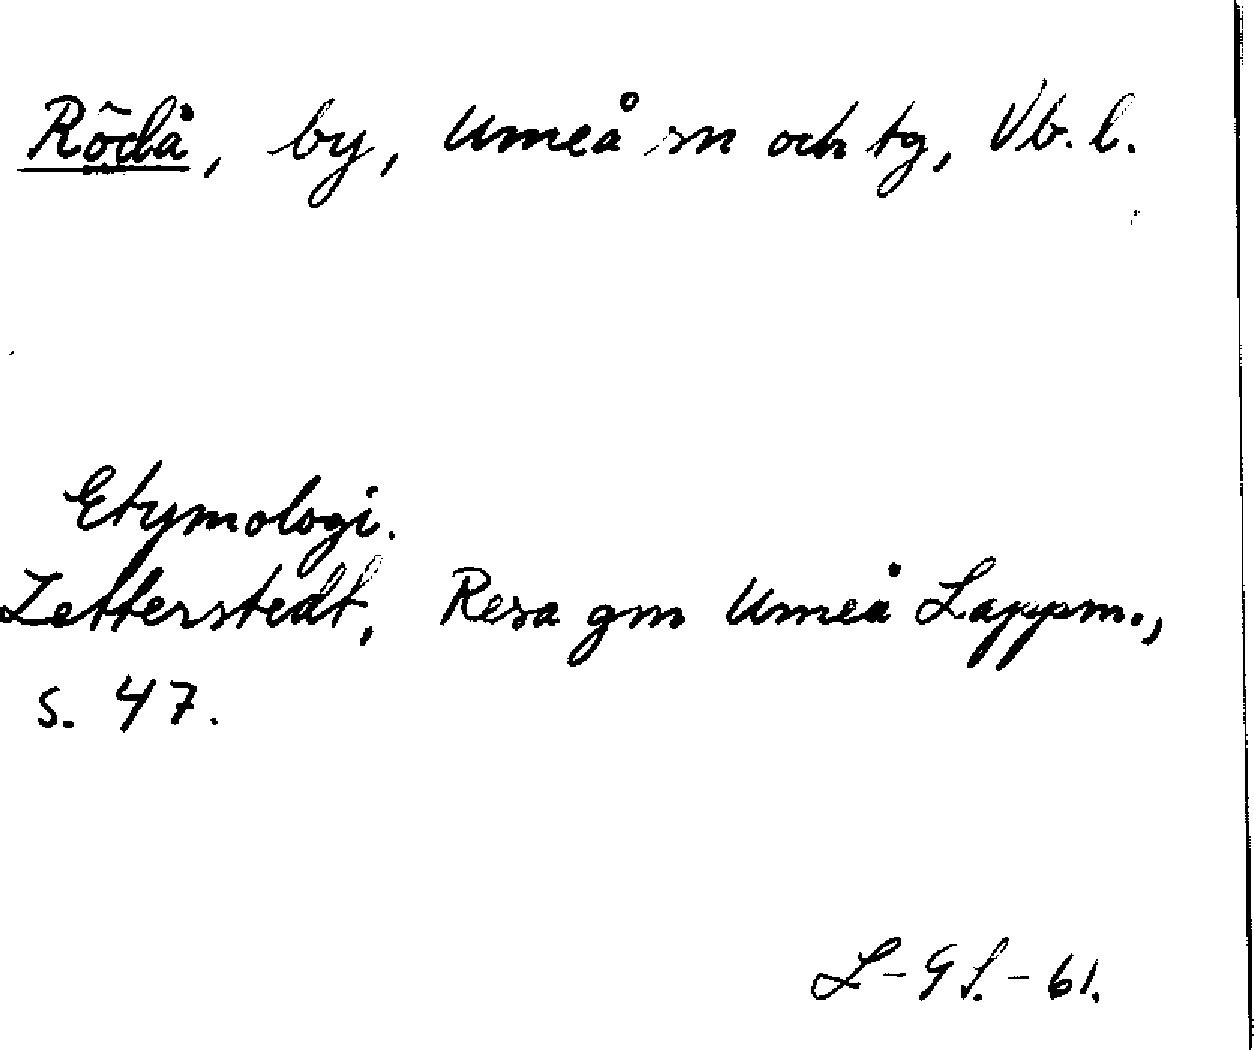 Rödå, by, Umeå sn och tg, Vb. l.
Etymologi.
Zetterstedt, Resa gm Umeå Lappm.,
s. 47.
L-G L. - 61.